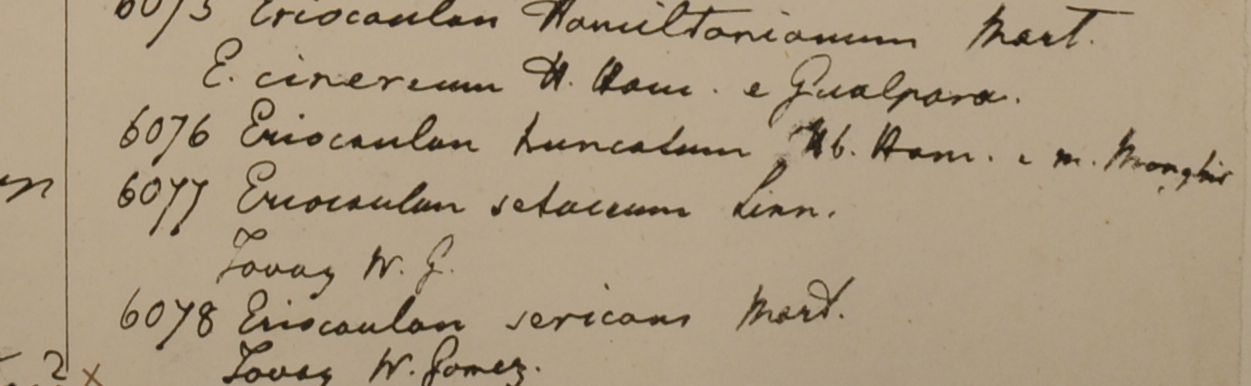 6075 Eriocaulon Hamiltonianum Mart.
E. cinereum H. Ham. e Gualpara.
6076 Eriocaulon truncatum Hb. Ham. e m. Monghir
6077 Eriocaulon setaceum Linn.
Tavoy W. G.
6078 Eriocaulon sericans Mart.
Tavoy W. Gomez.